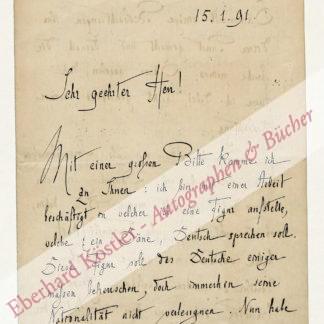 15.1.91.
Sehr geehrter Herr!
Mit einer großen Bitte komme ich
zu Ihnen: ich bin mit einer Arbeit
beschäftigt in welcher ich eine Figur aufstelle,
welche, ein Däne, Deutsch sprechen soll.
Diese Figur soll das Deutsche einiger
maßen beherrschen, doch immerhin seine
Nationalität nicht verleugnen. Nun habe
Eberhard Köstler - Autographen & Bücher